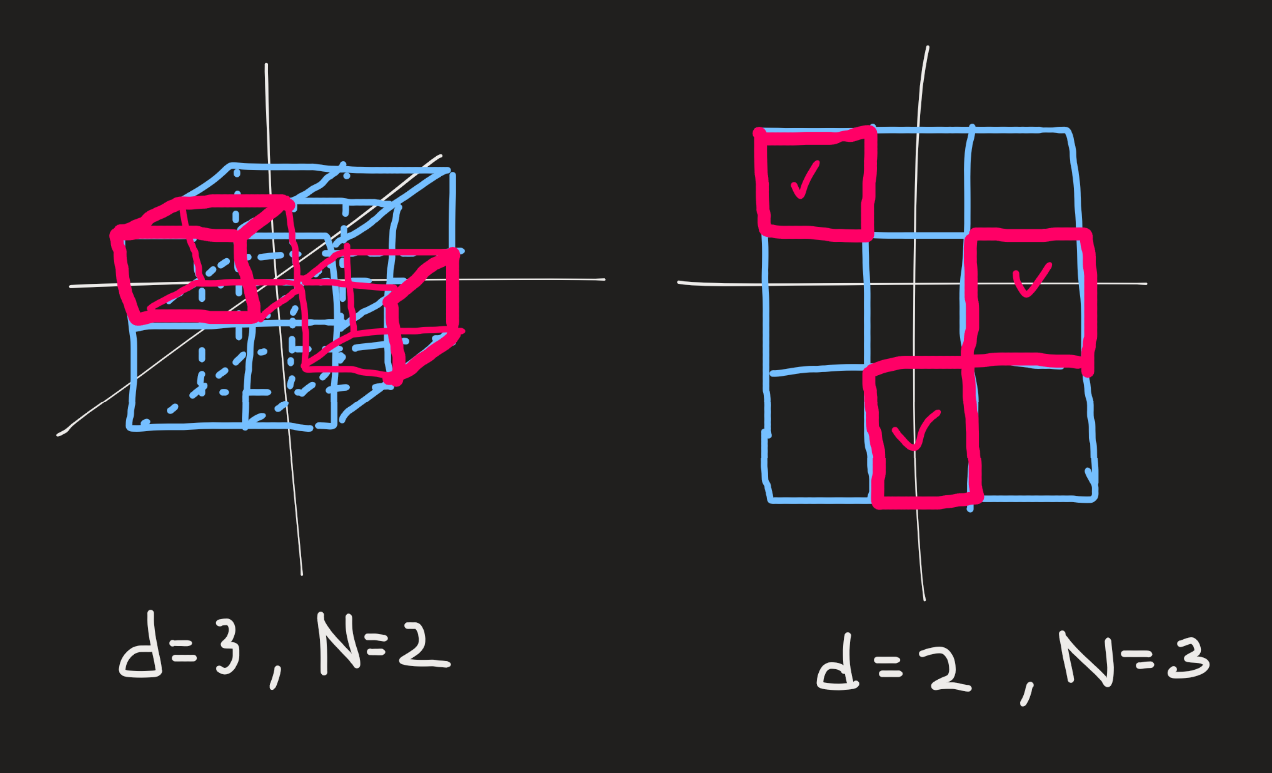 d=3, N=2
d=2, N=3